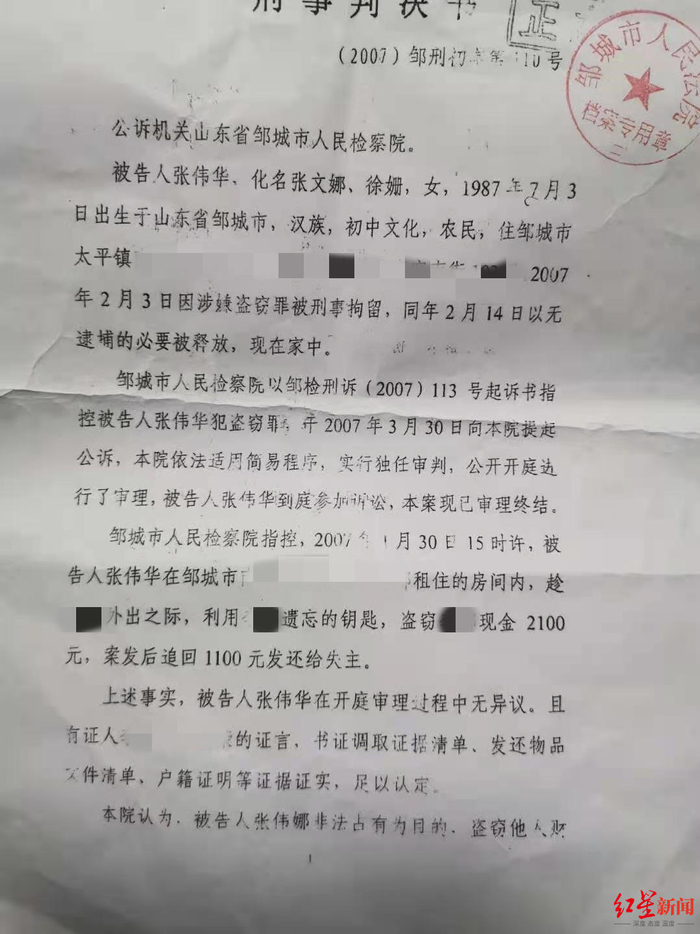 刑事判决书
正
(2007)邹刑初 第110号
邹城市人民法院
档案专用章
公诉机关山东省邹城市人民检察院。
被告人张伟华、化名张文娜、徐姗，女，1987年7月3
日出生于山东省邹城市，汉族，初中文化，农民，住邹城市
太平镇 2007
年2月3日因涉嫌盗窃罪被刑事拘留，同年2月14日以无
逮捕的必要被释放，现在家中。
邹城市人民检察院以邹检刑诉(2007)113号起诉书指
控被告人张伟华犯盗窃罪 于2007年3月30日向本院提起
公诉，本院依法适用简易程序，实行独任审判，公开开庭进
行了审理，被告人张伟华到庭参加诉讼，本案现已审理终结。
邹城市人民检察院指控，2007年1月30日15时许，被
告人张伟华在邹城市 租住的房间内，趁
外出之际，利用 遗忘的钥匙，盗窃 现金2100
元，案发后追回1100元发还给失主。
上述事实，被告人张伟华在开庭审理过程中无异议。且
有证人 的证言，书证调取证据清单、发还物品
文件清单，户籍证明等证据证实，足以认定。
本院认为，被告人张伟娜非法占有为目的，盗窃他人财
1
红星新闻
深度 态度 温度